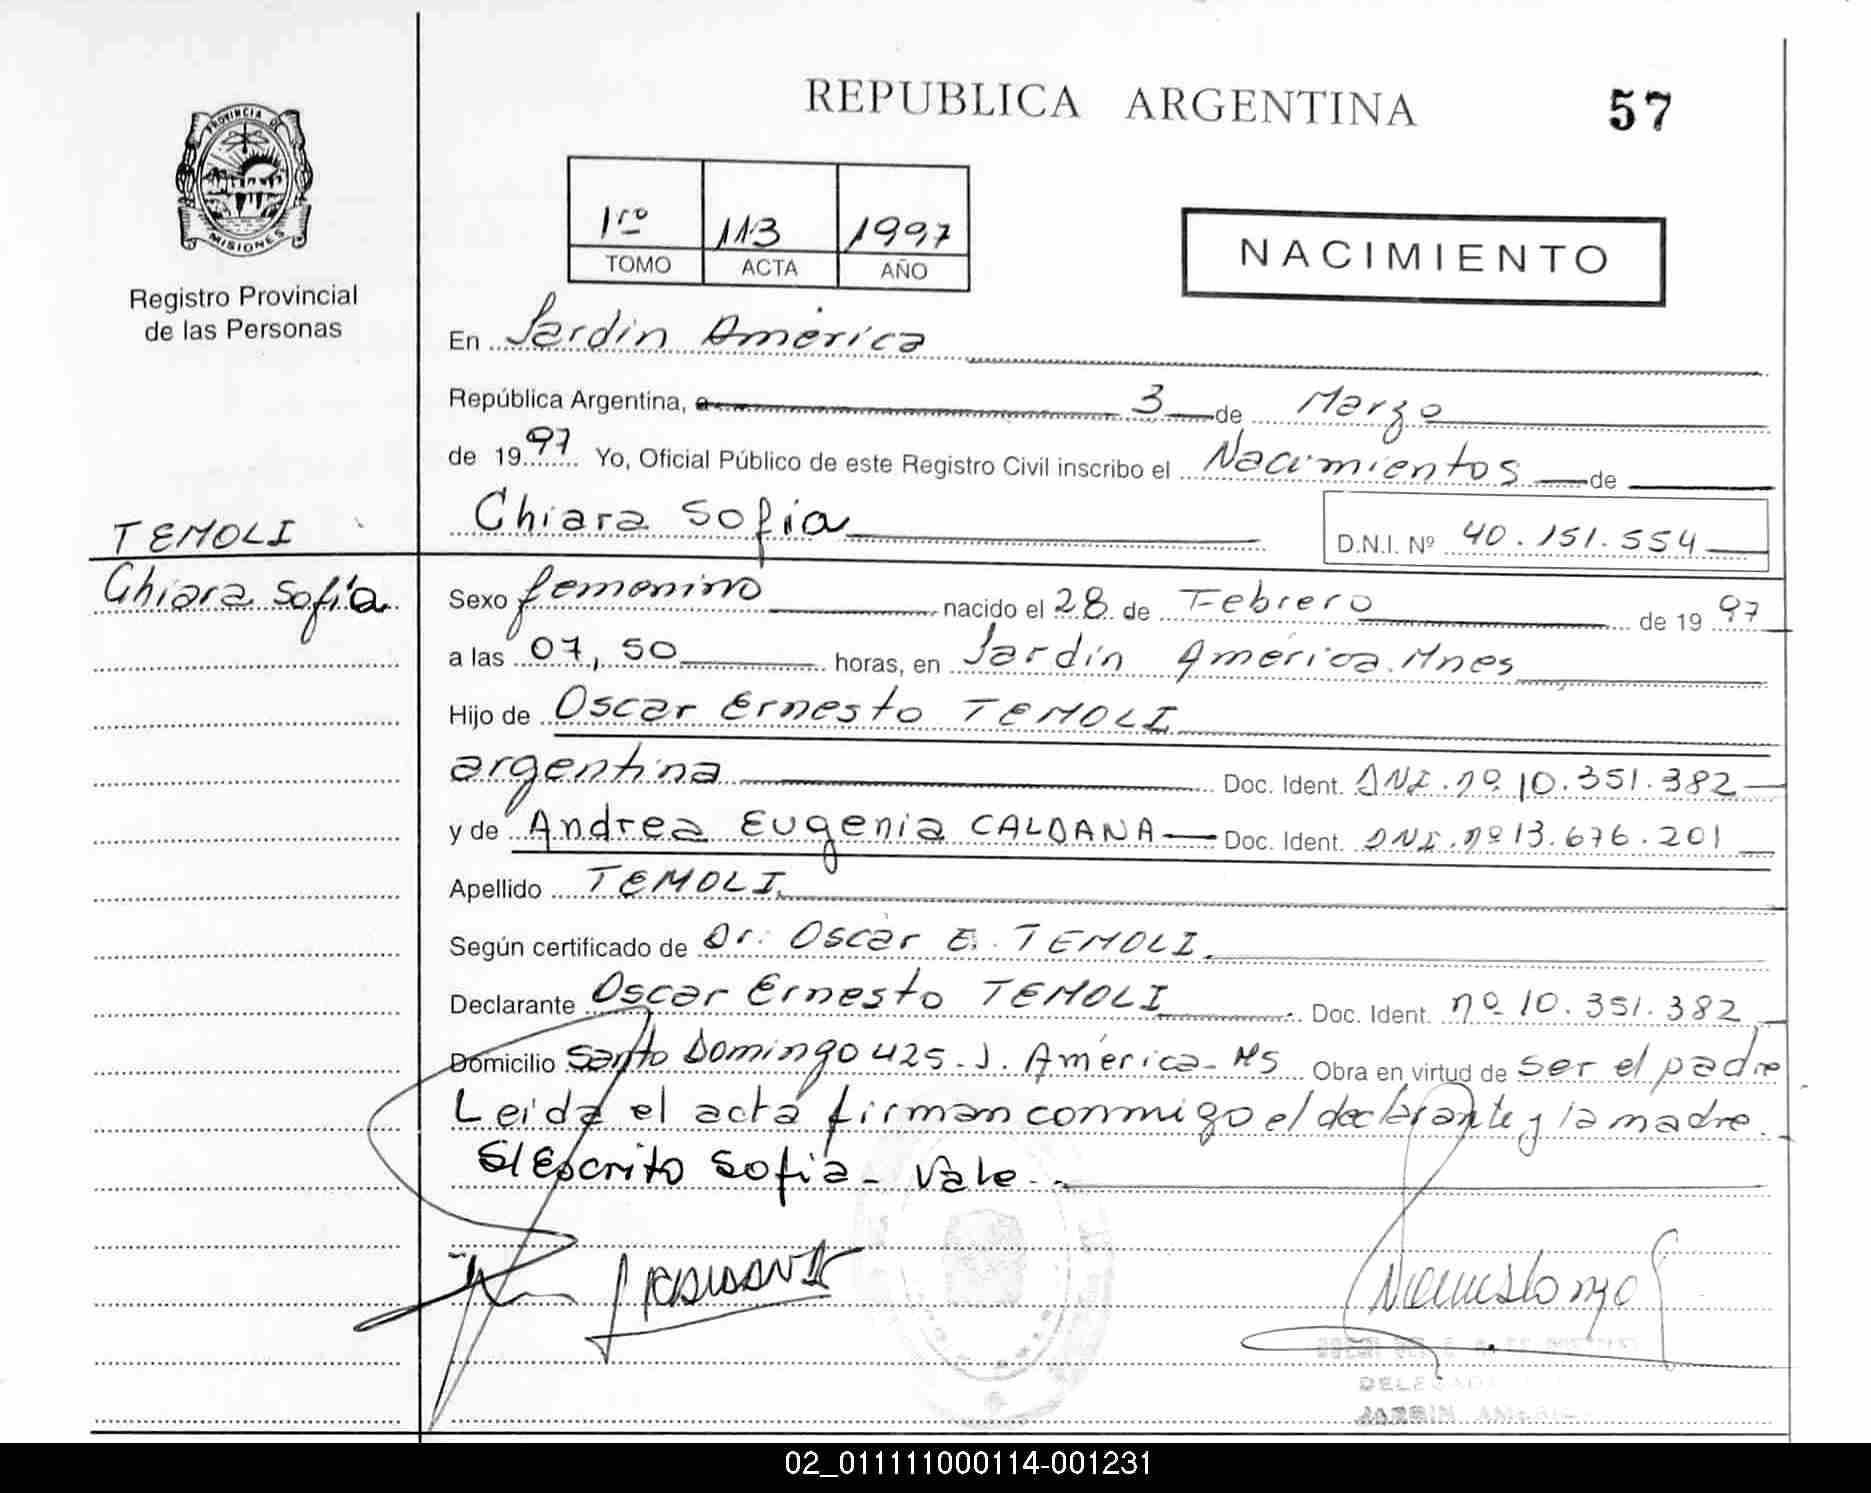 REPUBLICA ARGENTINA
57
PROVINCIA DE
MISIONES
Registro Provincial
de las Personas
1ro 113 1997
TOMO ACTA AÑO
NACIMIENTO
En Jardín América
República Argentina, a 3 de Marzo
de 1997 Yo, Oficial Público de este Registro Civil inscribo el Nacimientos de
Chiara Sofia D.N.I. Nº 40.151.554
TEMOLI
Chiara Sofía
Sexo femenino nacido el 28 de Febrero de 1997
a las 07,50 horas, en Jardín América. Mnes
Hijo de Oscar Ernesto TEMOLI
argentina Doc. Ident. DNI. nº 10.351.382
y de Andrea Eugenia CALDANA Doc. Ident. DNI. nº 13.676.201
Apellido TEMOLI
Según certificado de Dr. Oscar E. TEMOLI
Declarante Oscar Ernesto TEMOLI Doc. Ident. nº 10.351.382
Domicilio Santo Domingo 425. J. América - Ms Obra en virtud de ser el padre
Leida el acta firman conmigo el declarante y la madre.
S/Escrito Sofia - Vale -
DELEGAD
JARDIN AMERI
02_011111000114-001231